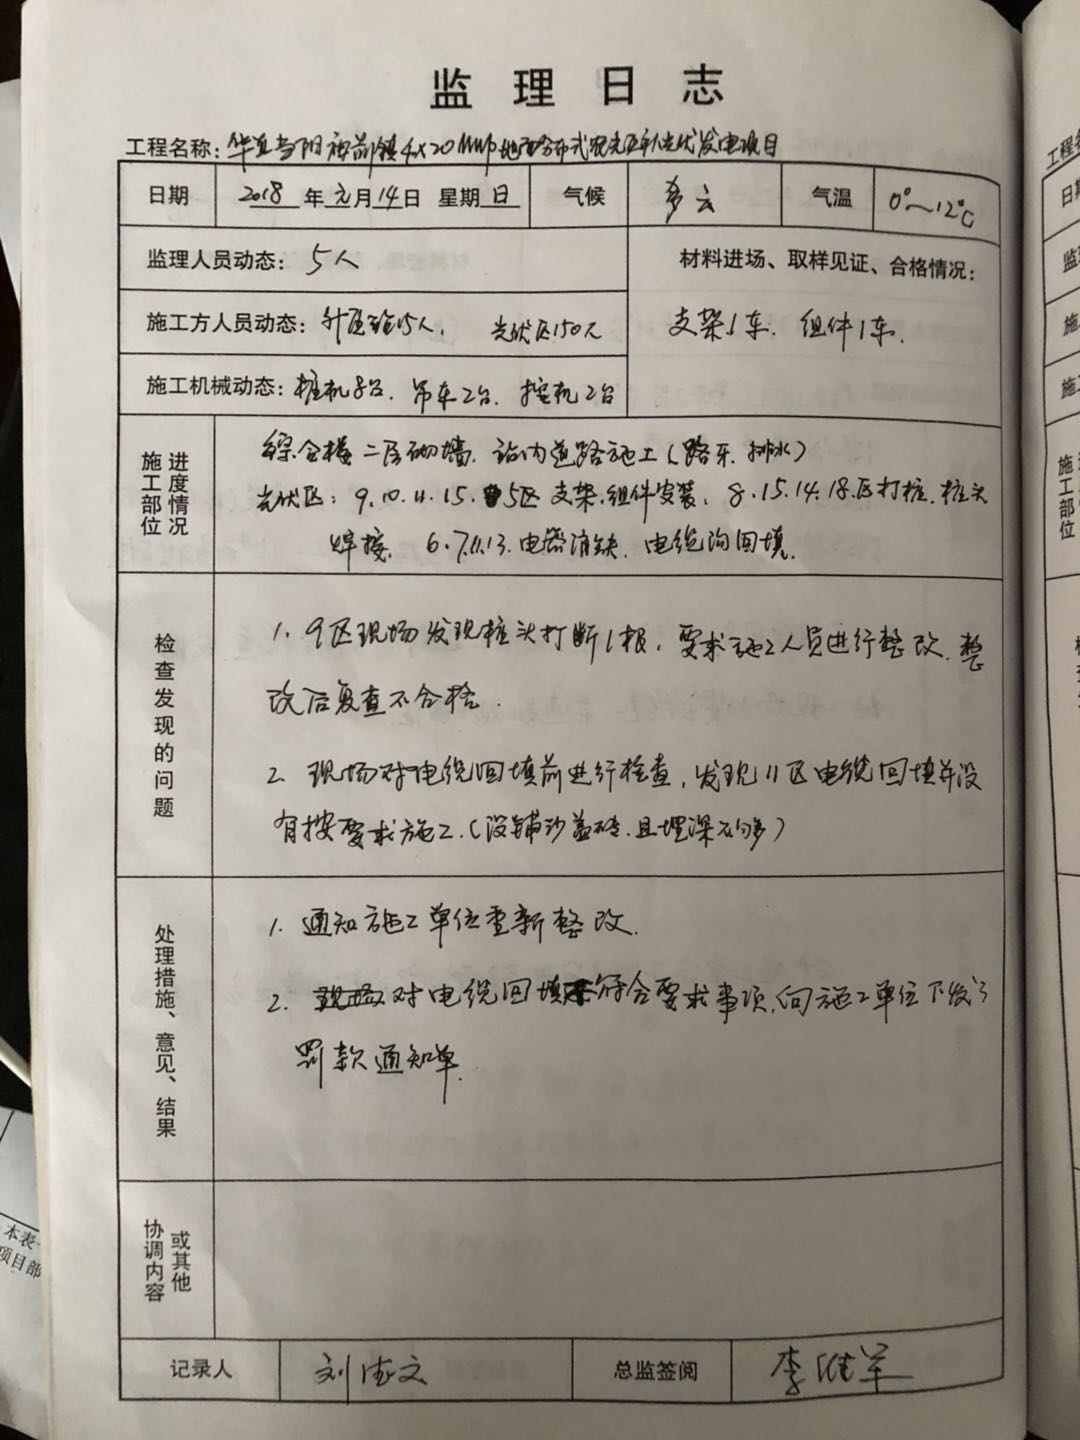 监理日志
工程名称：华 当阳庙前镇4×20MWp地面分布式农光 光伏发电项目
日期 2018年元月14日 星期日 气候 多云 气温 0°～12℃
监理人员动态：5人
材料进场、取样见证、合格情况：
施工方人员动态：升压站15人. 光伏区150人
支架1车. 组件1车.
施工机械动态：桩机8台. 吊车2台. 挖机2台
施工部位 进度情况
综合楼二层砌墙. 站内道路施工(路牙.排水)
光伏区：9.10.11.15.5区支架.组件安装. 8.15.14.18.区打桩.桩头
焊接. 6.7.11.13.电器消缺. 电缆沟回填.
检查发现的问题
1. 9区现场发现桩头打断1根，要求施工人员进行整改.整
改后复查不合格.
2. 现场对电缆回填前进行检查，发现11区电缆回填并没
有按要求施工.(没铺沙盖砖.且埋深不够)
处理措施、意见、结果
1. 通知施工单位重新整改.
2. 对电缆回填不符合要求事项,向施工单位下发了
罚款通知单.
协调内容 或其他
记录人 刘 文 总监签阅 李 军
本表
项目部